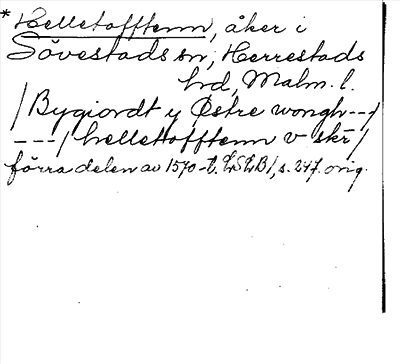 * Helletofftenn, åker i
Sövestads sn, Herrestads
hd, Malm. l.
/Bygiordt y Østre wongh---/
---/hellettofftenn v skr/
förra delen av 1570-t. LSLB/, s. 247. orig.